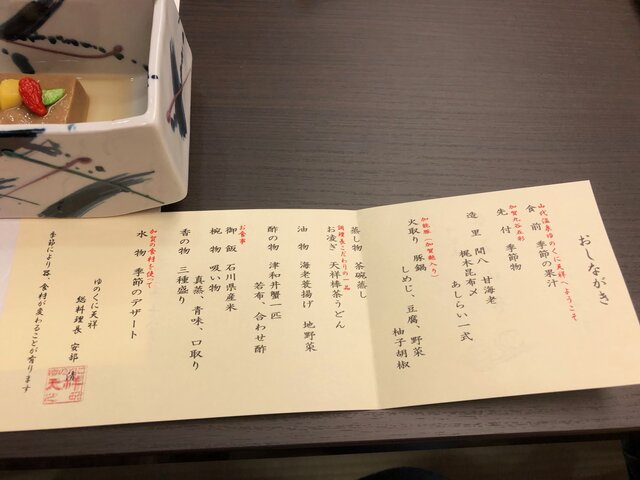 おしながき
山代温泉ゆのくに天祥へようこそ
食前 季節の果汁
加賀九谷五彩
先付 季節物
造里 間八 甘海老
梶木昆布〆
あしらい一式
加能豚(加賀麩入り)
火取り 豚鍋
しめじ、豆腐、野菜
柚子胡椒
蒸し物 茶碗蒸し
調理長こだわりの一品
お凌ぎ 天祥棒茶うどん
油物 海老蓑揚げ 地野菜
酢の物 津和井蟹一匹
若布、合わせ酢
お食事
御飯 石川県産米
椀物 吸い物
真蒸、青味、口取り
香の物 三種盛り
加賀の食材を使って
水物 季節のデザート
ゆのくに天祥
総料理長 安部
季節により器、食材が変わることが有ります